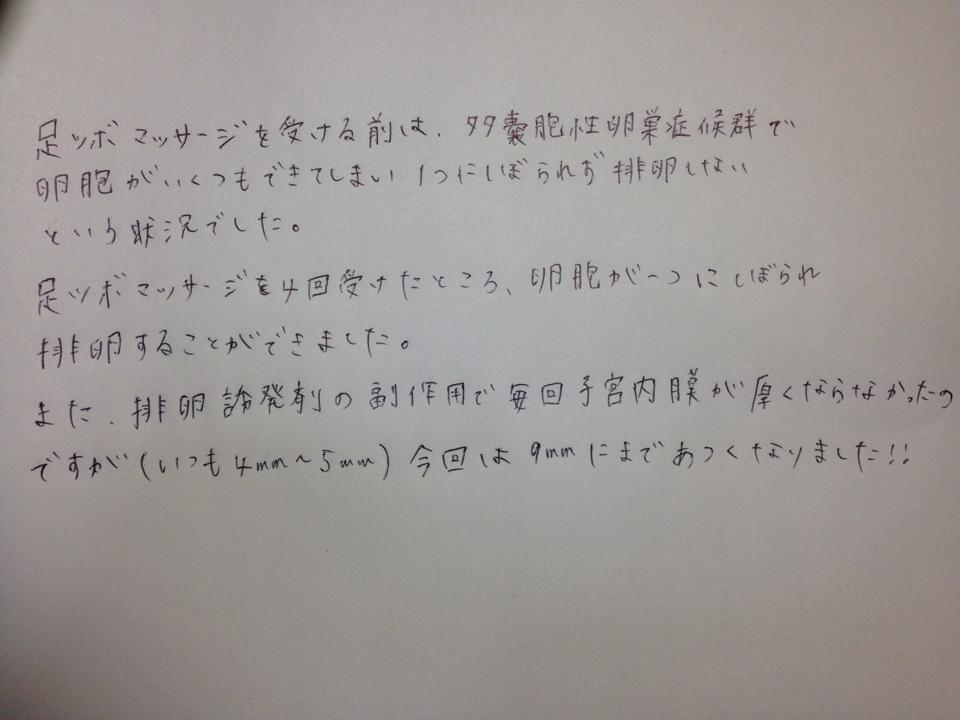 足ツボマッサージを受ける前は、多嚢胞性卵巣症候群で
卵胞がいくつもできてしまい1つにしぼられず排卵しない
という状況でした。
足ツボマッサージを4回受けたところ、卵胞が一つにしぼられ
排卵することができました。
また、排卵誘発剤の副作用で毎回子宮内膜が厚くならなかったの
ですが(いつも4mm~5mm)今回は9mmにまであつくなりました!!